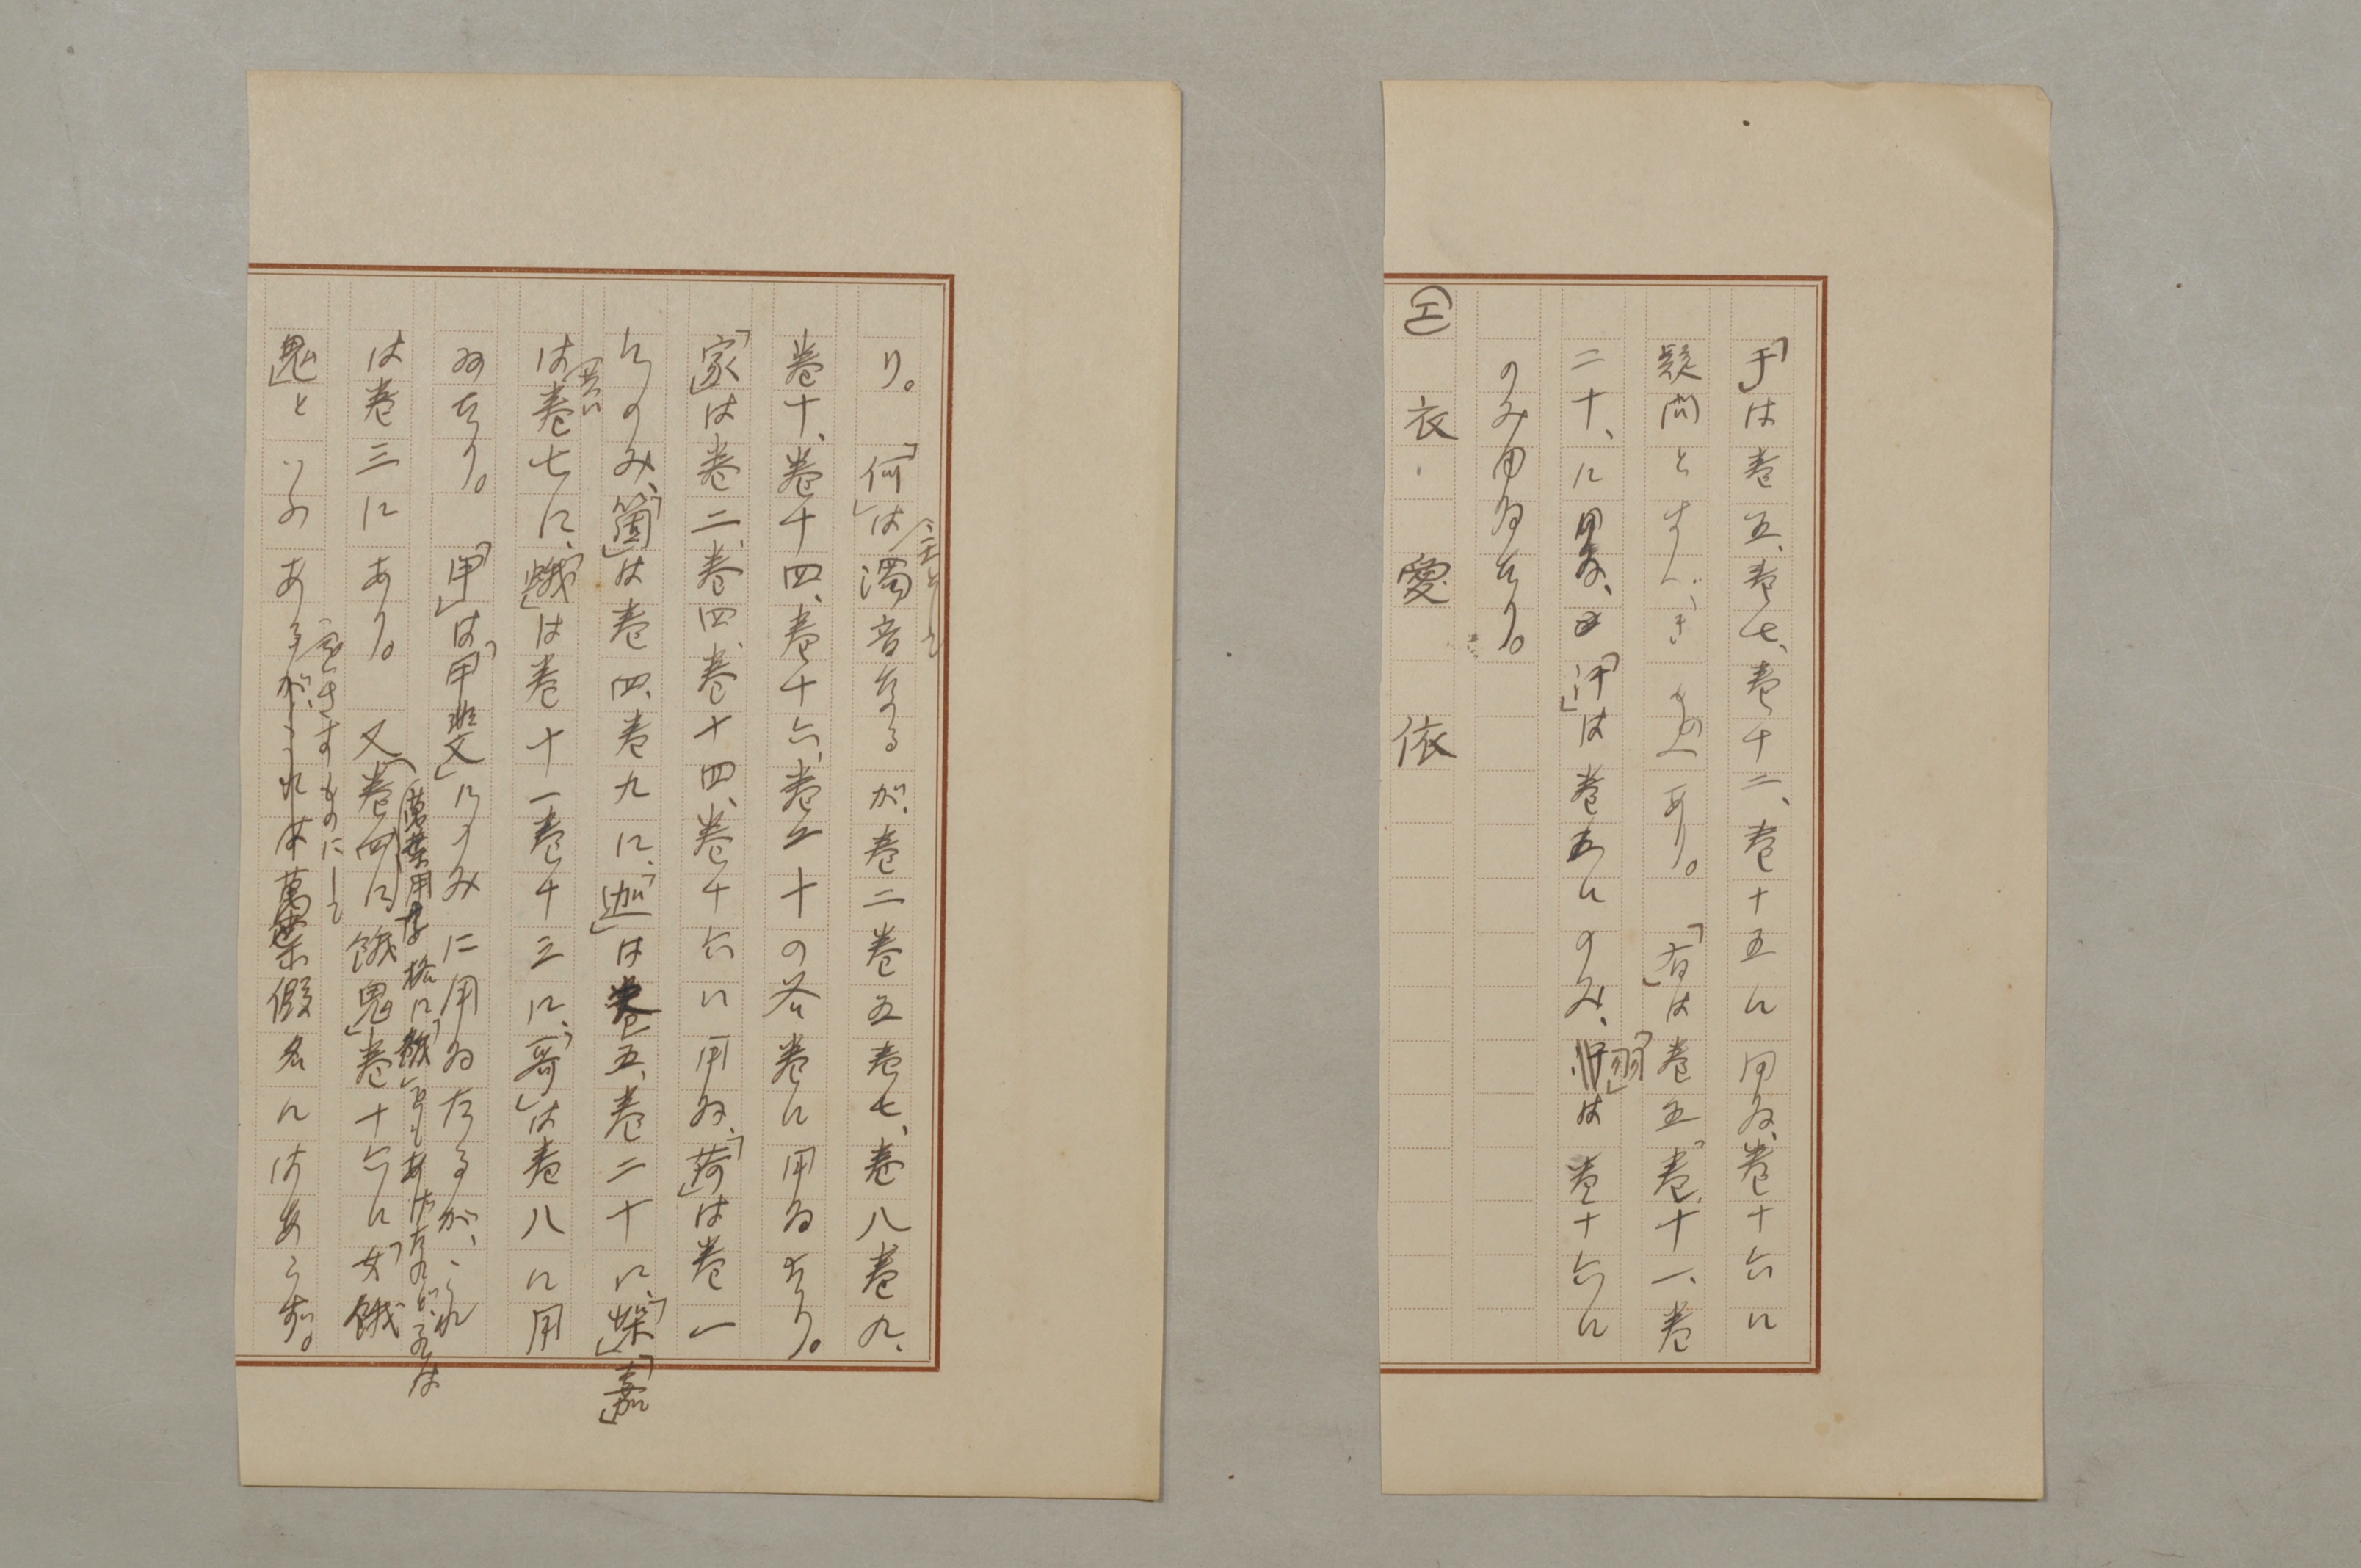 「于」は巻五、巻七、巻十二、巻十五に用ゐ、巻十六に
疑問とすべきもの一あり。「有」は巻五、巻十一、巻
二十、に用ゐ、「汙」は巻五にのみ、「羽」は巻十六に
のみ用ゐたり。
(エ) 衣 愛 依
り。「何」は濁音なるが、巻二巻五巻七、巻八巻九、
巻十、巻十四、巻十六、巻二十の各巻に用ゐたり。
「家」は巻二、巻四、巻十四、巻十六に用ゐ、「荷」は巻一
にのみ、「箇」は巻四、巻九に、「迦」は巻五、巻二十に、「架」「嘉」
共に
は巻七に、「蛾」は巻十一巻十三に、「哥」は巻八に用
ゐたり。「甲」は「甲斐」にのみに用ゐたるが、これ
萬葉用字格に「餓」もあげたれど、そは
は巻三にあり。又巻四に「餓鬼」巻十六に「女餓
をさすものにして
鬼」といふあるがこれは萬葉假名にはあらず。